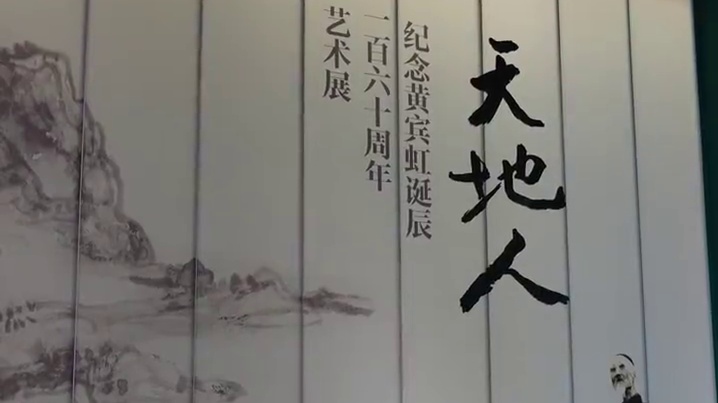 天地人
纪念黄宾虹诞辰
一百六十周年
艺术展